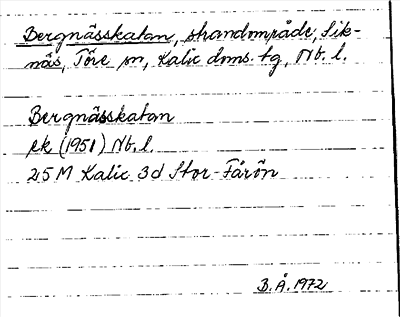 Bergnässkatan, strandområde, Sik-
näs, Töre sn, Kalix doms. tg, Nb. l.
Bergnässkatan
ek (1951) Nb. l.
25 M Kalix 3d Stor-Fårön
B. Å. 1972